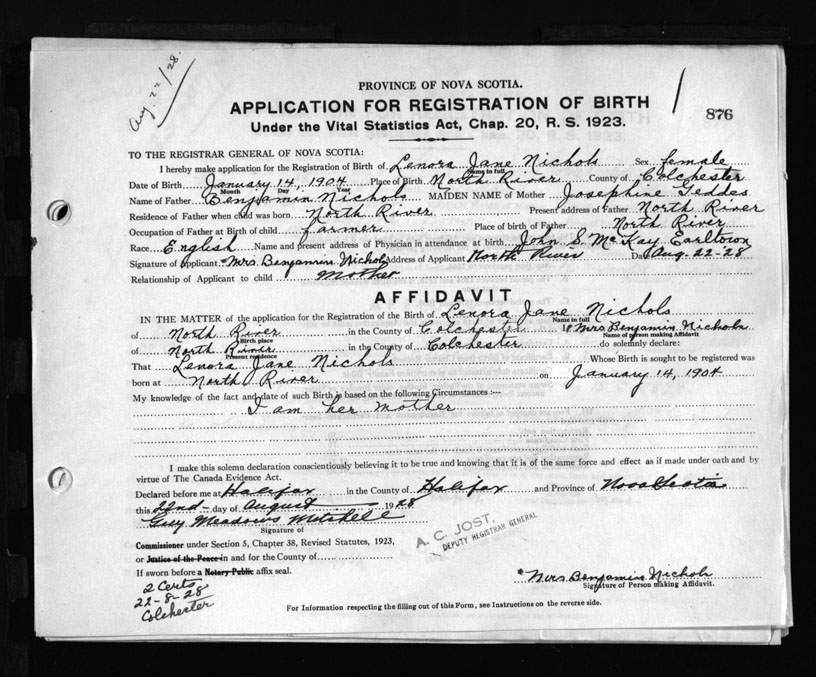 Aug. 22/28.
PROVINCE OF NOVA SCOTIA.
APPLICATION FOR REGISTRATION OF BIRTH
Under the Vital Statistics Act, Chap. 20, R. S. 1923.
876
TO THE REGISTRAR GENERAL OF NOVA SCOTIA:
I hereby make application for the Registration of Birth of Lenora Jane Nichols Sex female
Name in full
Date of Birth January 14, 1904 Place of Birth North River County of Colchester
Month Day Year
Name of Father Benjamin Nichols MAIDEN NAME of Mother Josephine Geddes
Residence of Father when child was born North River Present address of Father North River
Occupation of Father at Birth of child farmer Place of birth of Father North River
Race English Name and present address of Physician in attendance at birth John S. McKay Earltown
Signature of Applicant *Mrs. Benjamin Nichols Address of Applicant North River Date Aug. 22-28
Relationship of Applicant to child Mother
AFFIDAVIT
IN THE MATTER of the application for the Registration of the Birth of Lenora Jane Nichols
Name in full
of North River in the County of Colchester I Mrs Benjamin Nichols
Birth place Name of person making Affidavit
of North River in the County of Colchester do solemnly declare:
Present residence
That Lenora Jane Nichols Whose Birth is sought to be registered was
born at North River on January 14, 1904
My knowledge of the fact and date of such Birth is based on the following Circumstances :—
I am her mother
I make this solemn declaration conscientiously believing it to be true and knowing that it is of the same force and effect as if made under oath and by
virtue of The Canada Evidence Act.
Declared before me at Halifax in the County of Halifax and Province of Nova Scotia
this 22nd day of August 1928
Guy Meadows Mitchell
Signature of
A. C. JOST,
DEPUTY REGISTRAR GENERAL
Commissioner under Section 5, Chapter 38, Revised Statutes, 1923,
or Justice of the Peace in and for the County of
If sworn before a Notary Public affix seal.
*Mrs Benjamin Nichols
Signature of Person making Affidavit.
2 Certs
22-8-28
Colchester
For Information respecting the filling out of this Form, see Instructions on the reverse side.